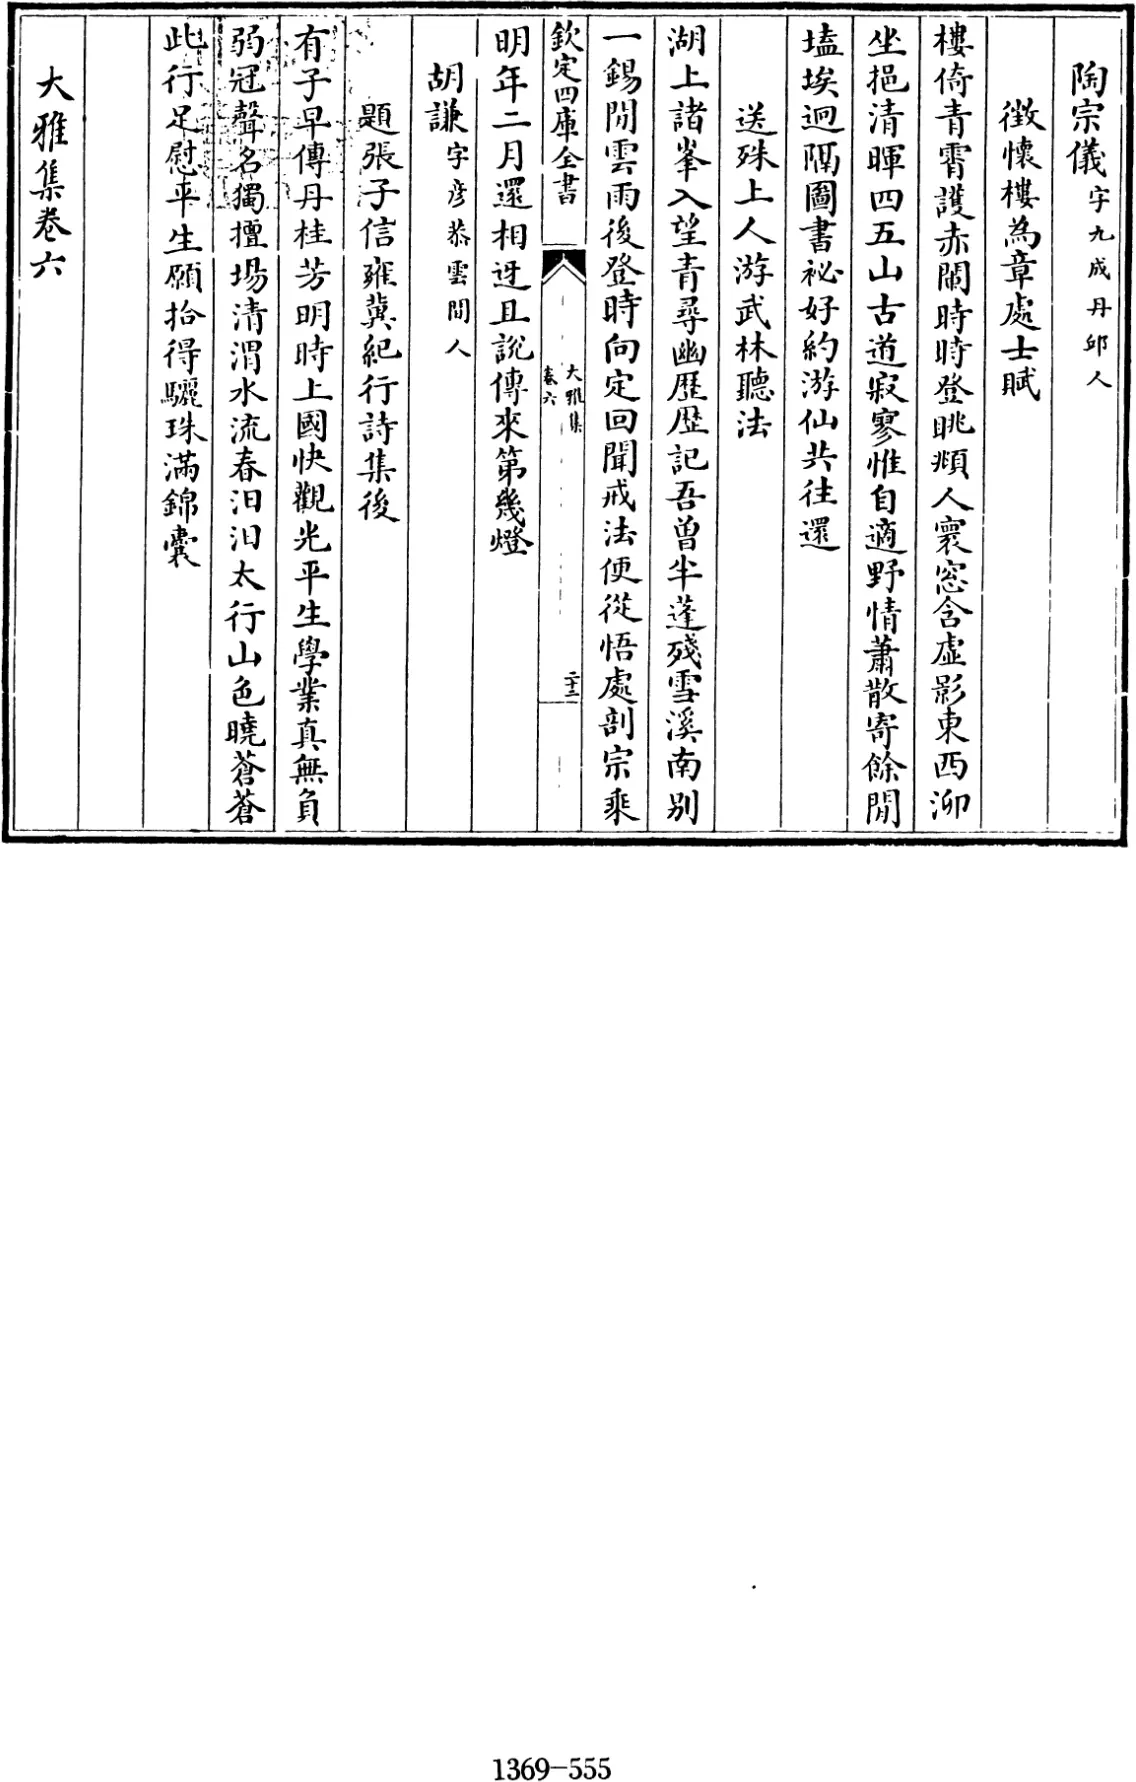 陶宗儀字九成丹邱人
徴懷樓為章處士賦
樓倚青霄護赤闌時時登眺頫人寰窓含虛影東西泖
坐挹清暉四五山古道寂寥惟自適野情蕭散寄餘閒
𡏖埃迥隔圖書祕好約游仙共往還
送殊上人游武林聽法
湖上諸峯入望青尋幽歴歴記吾曽半蓬殘雪溪南別
一錫閒雲雨後登時向定回聞戒法便從悟處剖宗乘
欽定四庫全書
大雅集
卷六
二十二
明年二月還相迓且說傳來第幾燈
胡謙字彦恭雲間人
題張子信雍冀紀行詩集後
有子早傳丹桂芳明時上國快觀光平生學業真無負
弱冠聲名獨擅場清渭水流春汩汩太行山色曉蒼蒼
此行足慰平生願拾得驪珠滿錦囊
大雅集卷六
1369-555